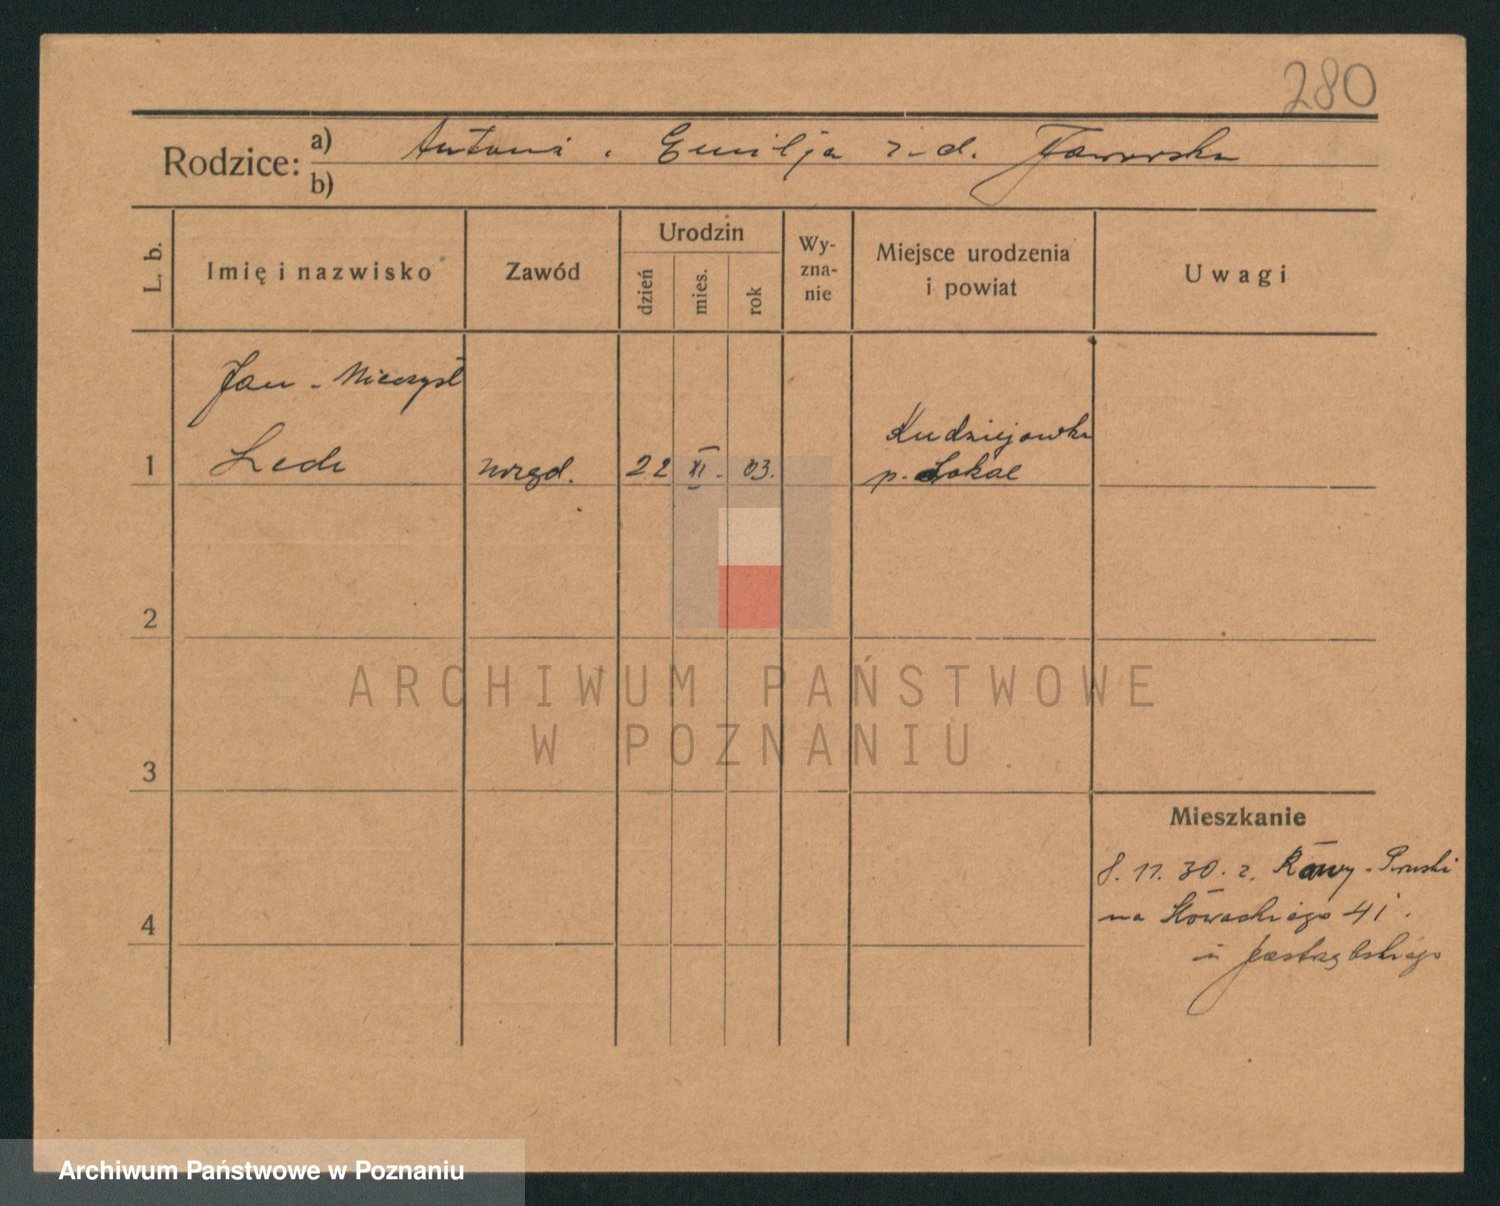 280
Rodzice: a) Antoni i Emilja z-d. Jaworska
b)
L. b.
Imię i nazwisko
Zawód
Urodzin
dzień
mies.
rok
Wy-
zna-
nie
Miejsce urodzenia
i powiat
Uwagi
Jan - Mieczysł
1 22 XI. 03. Kudziejowka
p. Sokal
2
3
4
ARCHIWUM PAŃSTWOWE
W POZNANIU
Mieszkanie
8. 11. 30. z. Rawy-
na Słowackiego 41.
u Jastrzębskiego
Archiwum Państwowe w Poznaniu